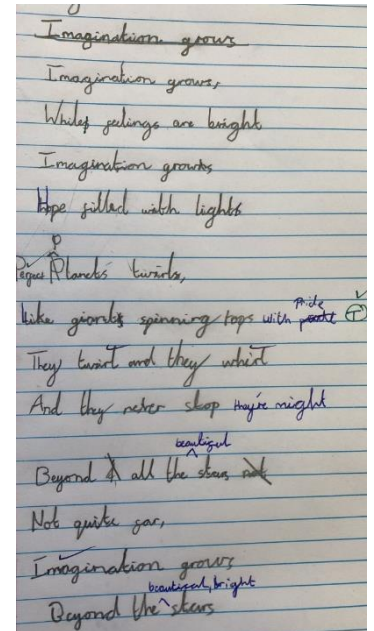 Imagination grows
Imagination grows,
While feelings are bright
Imagination grows
Hope filled with lights
Perfect Planets twirls,
Like giants spinning tops with Pride
They twirl and they whirl
And they never stop they're might
Beyond all the beautiful stars
Not quite far,
Imagination grows
Beyond the beautiful, bright stars